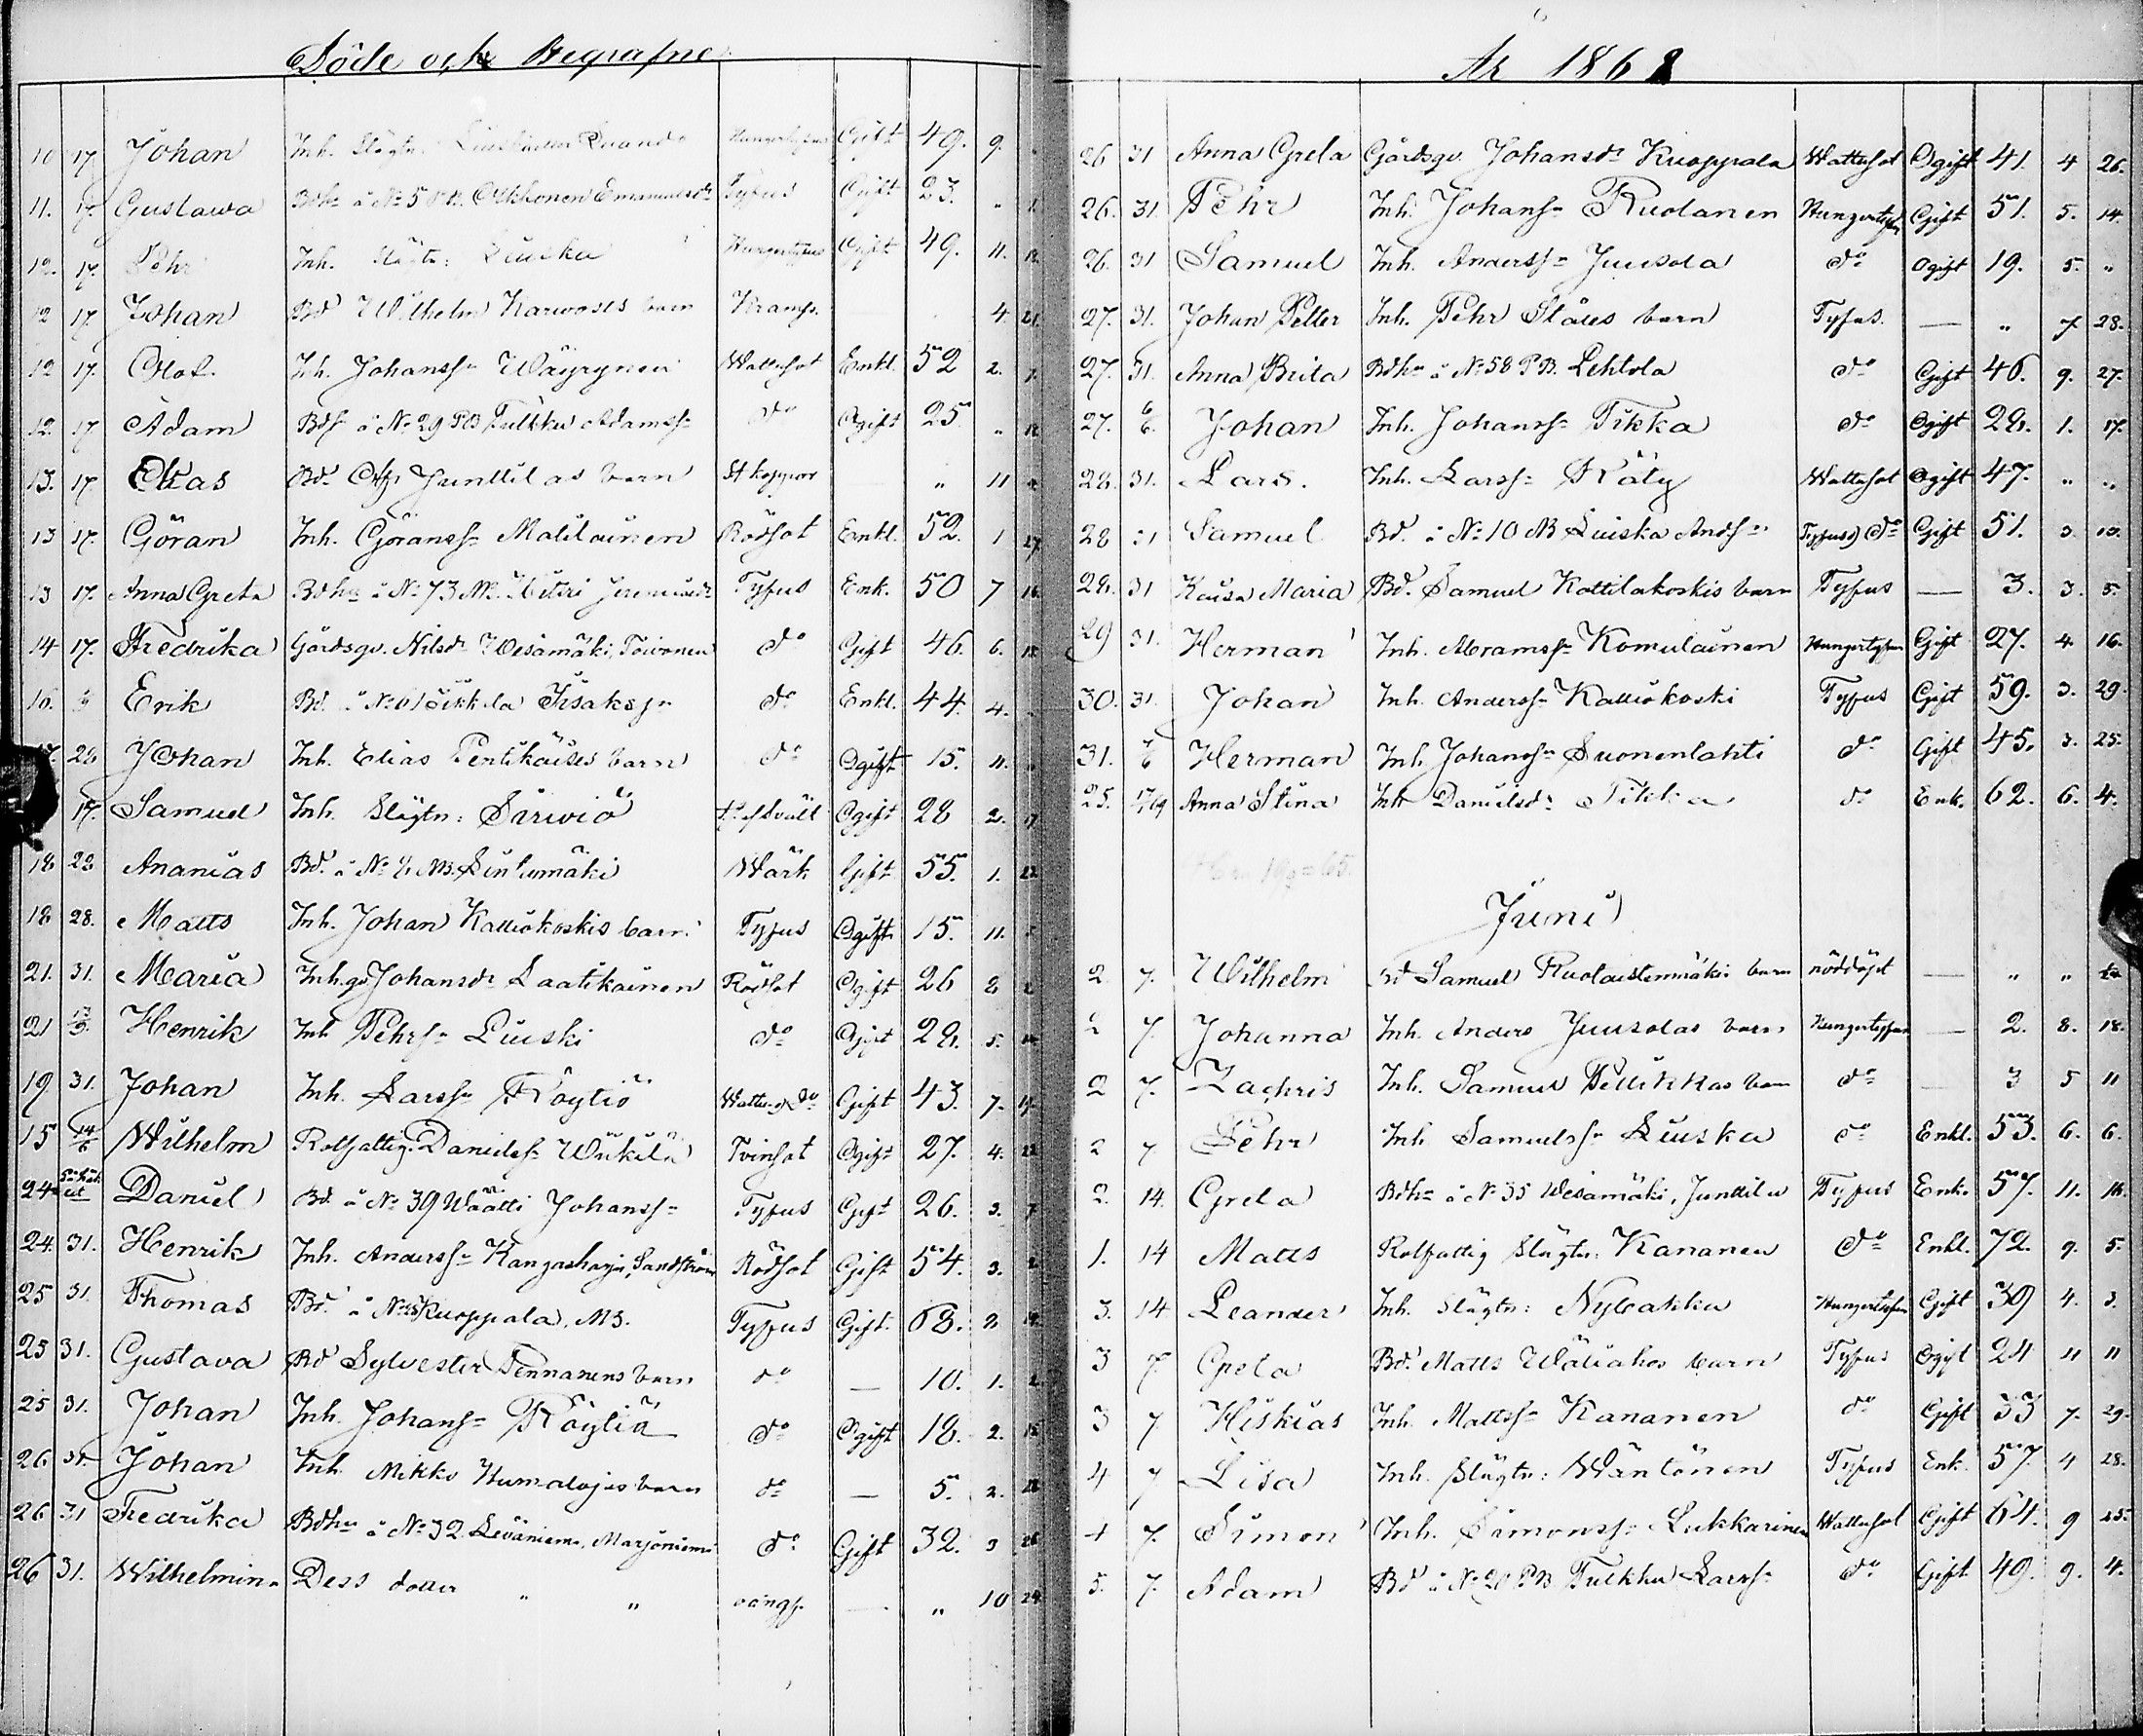 Döde och Begrafne
10 17. Johan Inh. Slägtn. Gift 49. 9.
11. 17. Gustawa Bdhu å No 5 Emanuelsdr Tyfus Gift 23. "
12. 17. Pehr Inh. Slägtn: Liuska Gift 49. 11.
12 17. Johan Bd Wilhelm Karwoses barn Kramp. 4. 21.
12 17. Olof Inh. Johanss:n Wäyrynen Wattusot Enkl. 52 2.
12. 17 Adam Bds å No 29 PB Tulikka Adamss:n do Ogift 25. "
13. 17. Elias Bd. Junttilas barn St koppor " 11
13 17. Göran Inh. Göranss:n Matilainen Rödsot Enkl. 52. 1 27.
13 17. Anna Greta Bdhu å No 73 Tyfus Enk. 50 7 16.
14 17. Fredrika Gårdsgo. Nilsdr Wesamäki, Toivonen do Gift 46. 6. 18.
16. Erik Bd. å No 6 Isakss:n do Enkl. 44. 4.
17. 28 Johan Inh. Elias Pentikäises barn do Ogift 15. 11.
17. Samuel Inh. Slägtn: Särwiö Ogift 28 2. 17
18 28 Ananias Bd. å No MB. Wärk Gift 55. 1. 22
18 28. Matts Inh. Johan Kalliokoskis barn Tyfus Ogift 15. 11.
21. 31. Maria Inh.go Johansdr Laatikainen Rödsot Ogift 26 8
21 Henrik Inh. Pehrs:n Liuski do Ogift 28. 5.
19 31. Johan Inh. Larss:n Röytiö Gift 43. 7.
15 14/6 Wilhelm Rotfattig. Danielss:n Wiikilä Tvinsot Ogift 27. 4. 22
24 Daniel Bd. å No 39 Wäätti Johanss:n Tyfus Gift 26. 3. 7
24. 31. Henrik Inh. Anderss:n Kangasharju, Sandström Rödsot Gift 54. 3.
25 31. Thomas Bd. å No Kuoppala, MB. Tyfus Gift. 68. 8
25 31. Gustava Bd Sylvester Tennanens barn do — 10. 1. 2.
25 31. Johan Inh. Johans:n Röytiä do Ogift 18. 2. 15
26 31. Johan Inh. Mikko Humalojas barn do — 5. 2. 28
26 31 Fredrika Bdhu å No 32 Leväniemi, Marjoniemi do Gift 32. 3 26
26 31. Wilhelmina Dess dotter " " — " 10 24.
År 1868
26 31 Anna Greta Gårdsgo. Johansdr Kuoppala Wattusot Ogift 41. 4 26.
26. 31. Pehr Inh. Johanss:n Ruotanen Hungertyfus Gift 51. 5. 14.
26. 31 Samuel Inh. Anderss:n Juusola do Ogift 19. 5. "
27. 31. Johan Petter Inh. Pehr Ståles barn Tyfus. — " 7 28.
27. 31. Anna Brita Bdhu å No 58 PB. Lehtola do Gift 46. 9. 27.
27. 6/6. Johan Inh. Johanss:n Tikka do Ogift 28. 1. 17.
28. 31. Lars. Inh. Larss:n Räty Wattusot Ogift 47. " "
28 31 Samuel Bd. å No 10 MB Liuska Ands:n Tyfus o do Gift 51. 3. 13.
28. 31 Kaisa Maria Bd. Samuel Kottilakoskis barn Tyfus — 3. 3. 5.
29 31. Herman Inh. Abramss:n Komulainen Hungertyfus Gift 27. 4. 16.
30. 31. Johan Inh. Anderss:n Kalliokoski Tyfus Gift 59. 3. 29.
31. 7/6 Herman Inh. Johanss:n Suonenlahti do Gift 45. 3. 25.
25. Anna Stina Inh Danielsdr Tikka do Enk. 62. 6. 4.
Juni
2. 7. Wilhelm Bd Samuel barn nöddöpt — " "
2 7. Johanna Inh. Anders Juusolas barn Hungertyfus — 2. 8. 18.
2 7. Zachris Inh. Samuel Pellikkas barn do — 3 5 11
2 7 Pehr Inh. Samuelss:n Liuska do Enkl. 53. 6. 6.
2. 14. Greta Bdhu å No 35 Wesamäki, Junttila Tyfus Enk. 57. 11. 16.
1. 14 Matts Rotfattig Slägtn: Kananen do Enkl. 72. 9. 5.
3. 14 Leander Inh. Slägtn: Nybakka Hungertyfus Gift 39 4. 3.
3 7. Greta Bd. Matts Wäliahos barn Tyfus Ogift 24 11 11
3 7. Hiskias Inh. Mattss:n Kananen do Gift 33 7. 29.
4 7 Lisa Inh. Slägtn: Wäntönen Tyfus Enk. 57. 4 28.
4 7. Simon Inh. Simonss:n Lukkarinen Wattusot Gift 64. 9 25.
5. 7. Adam Bd å No 20 PB Tulkku Larss:n do Gift 49. 9. 4.